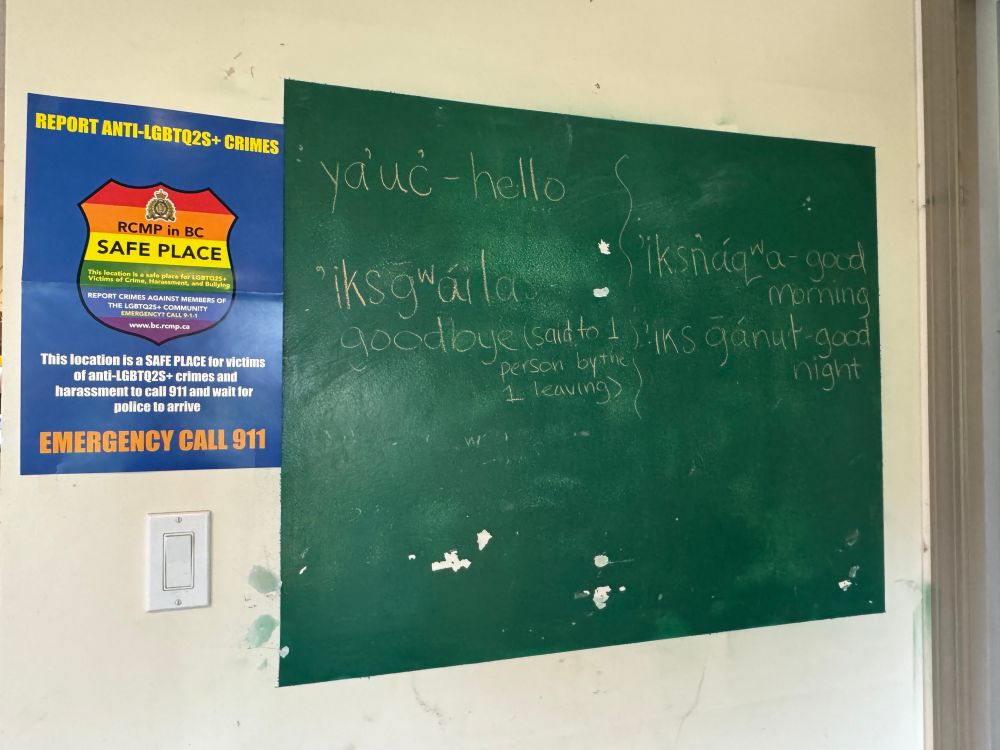 REPORT ANTI-LGBTQ2S+ CRIMES
RCMP in BC
SAFE PLACE
This location is a safe place for LGBTQ2S+
Victims of Crime, Harassment, and Bullying
REPORT CRIMES AGAINST MEMBERS OF
THE LGBTQ2S+ COMMUNITY
EMERGENCY? CALL 9-1-1
www.bc.rcmp.ca
This location is a SAFE PLACE for victims
of anti-LGBTQ2S+ crimes and
harassment to call 911 and wait for
police to arrive
EMERGENCY CALL 911
ya̓uc̓ - hello
ʼiksḡʷáila
goodbye (said to 1
person by the
1 leaving)
ʼiksn̓áq̲ʷa - good
morning
ʼiks ḡánuƚ - good
night